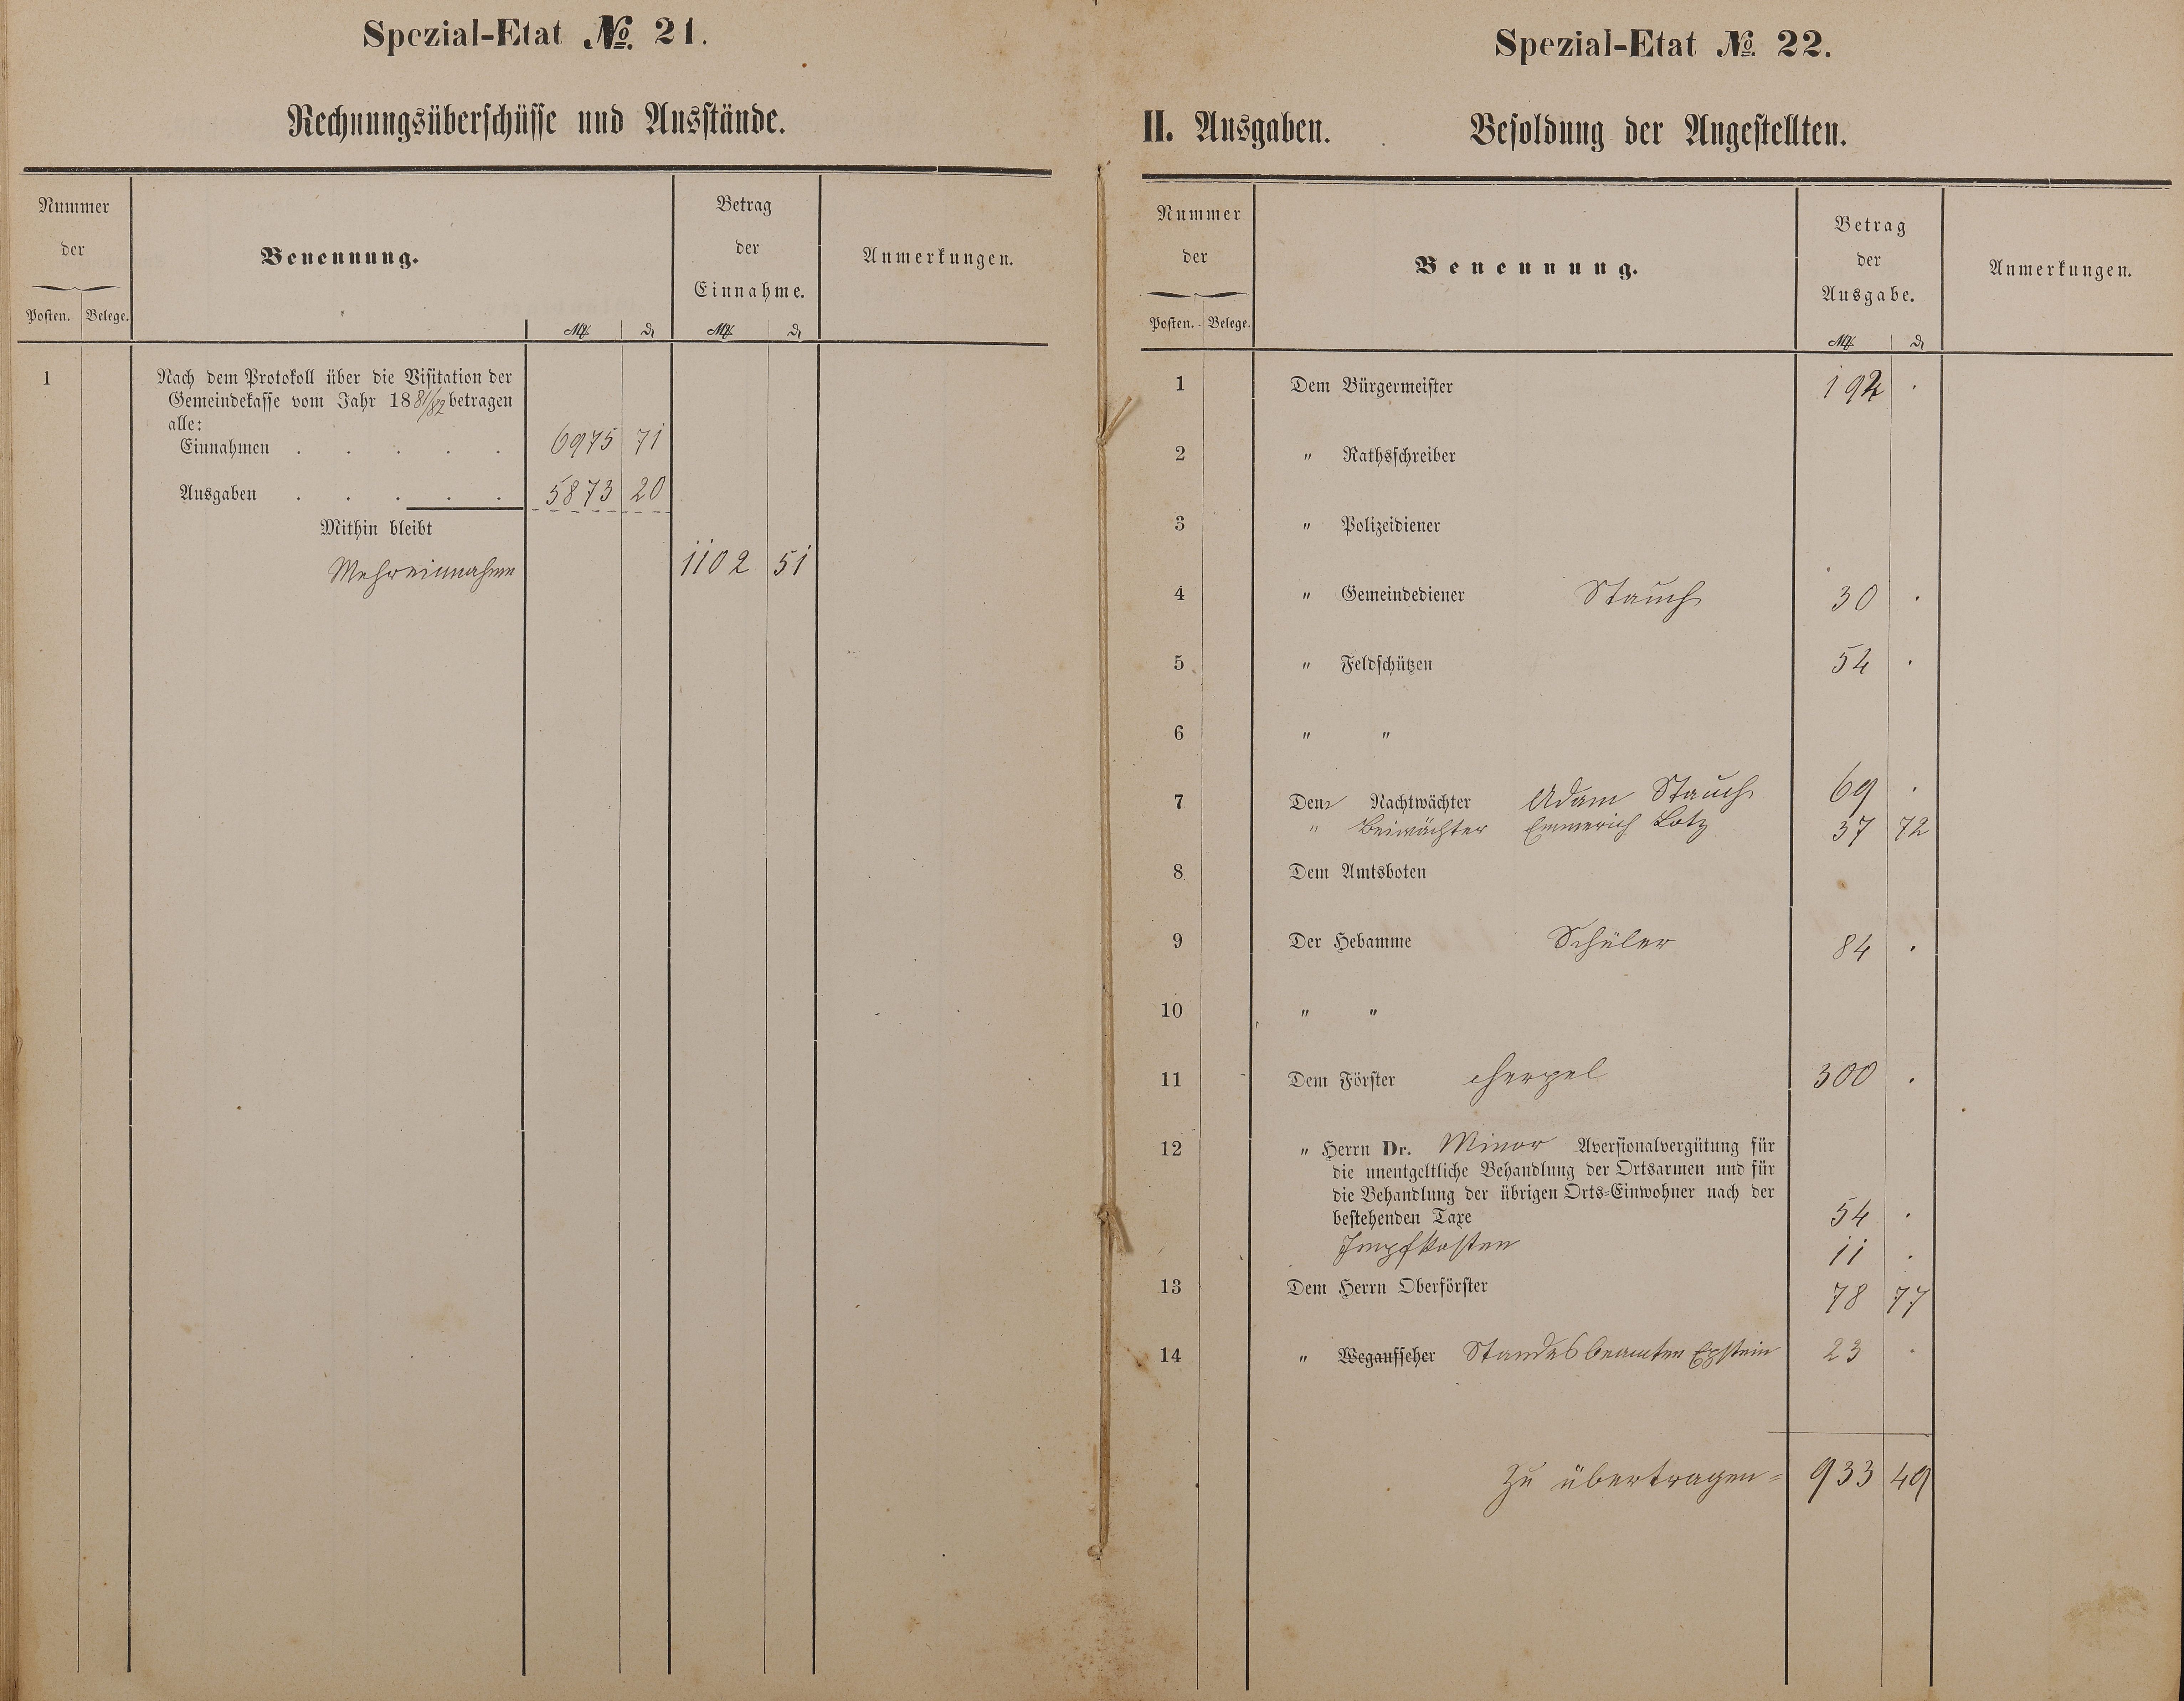 Spezial-Etat № 21.
Rechnungsüberschüsse und Ausstände.
Nummer
der
Posten. Belege.
Benennung.
M d
Betrag
der
Einnahme.
M d
Anmerkungen.
1 Nach dem Protokoll über die Visitation der
Gemeindekasse vom Jahr 1881/82 betragen
alle:
Einnahmen . . . . . 6975 71
Ausgaben . . . . . 5873 20
Mithin bleibt
Mehreinnahme 1102 51
Spezial-Etat № 22.
II. Ausgaben. Besoldung der Angestellten.
Nummer
der
Posten. Belege.
Benennung.
Betrag
der
Ausgabe.
M d
Anmerkungen.
1 Dem Bürgermeister 192 .
2 " Rathsschreiber
3 " Polizeidiener
4 " Gemeindediener Stauch 30 .
5 " Feldschützen 54 .
6 " "
7 Dem Nachtwächter Adam Stauch 69 .
" Beiwächter Emmerich Lotz 37 72
8 Dem Amtsboten
9 Der Hebamme Schüler 84 .
10 " "
11 Dem Förster Herpel 300 .
12 " Herrn Dr. Minor Aversionalvergütung für
die unentgeltliche Behandlung der Ortsarmen und für
die Behandlung der übrigen Orts-Einwohner nach der
bestehenden Taxe 54 .
Impfkosten 11 .
13 Dem Herrn Oberförster 78 77
14 " Wegaufseher Standesbeamten Epstein 23 .
Zu übertragen = 933 49